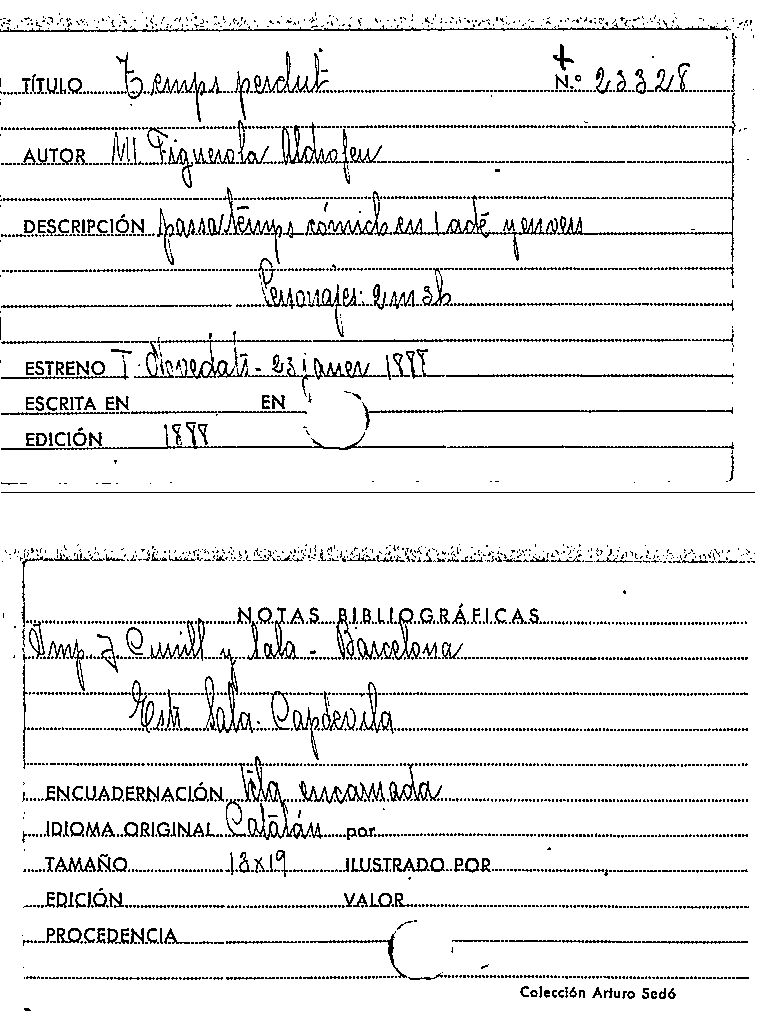 TÍTULO Temps perdut + N.º 23328
AUTOR Ml Figuerola Aldrofeu
DESCRIPCIÓN passatemps cómich en 1 acte y en vers
Personajes: 2m 3h
ESTRENO T. Novedats - 23 janer 1888
ESCRITA EN EN
EDICIÓN 1888
NOTAS BIBLIOGRÁFICAS
Imp J Cunill y Sala - Barcelona
Sala - Capdevila
ENCUADERNACIÓN tela encarnada
IDIOMA ORIGINAL Catalán por
TAMAÑO 13x19 ILUSTRADO POR
EDICIÓN VALOR
PROCEDENCIA
Colección Arturo Sedó